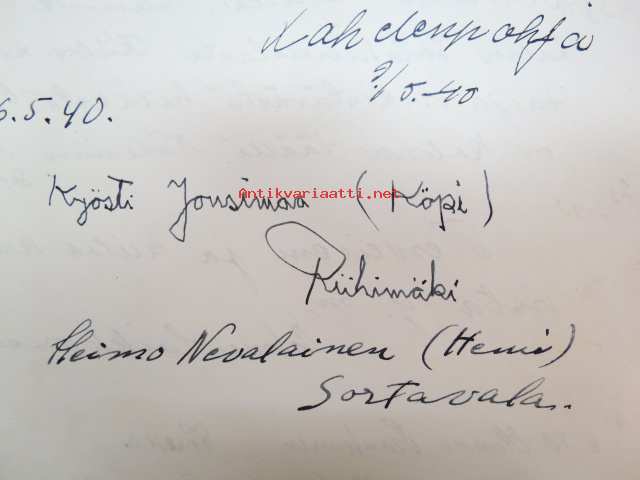 Lahdenpohja
9/5.-40
6.5.40.
Kyösti Jousimaa (Köpi)
Antikvariaatti.net
Riihimäki
Heimo Nevalainen (Hemi)
Sortavala..